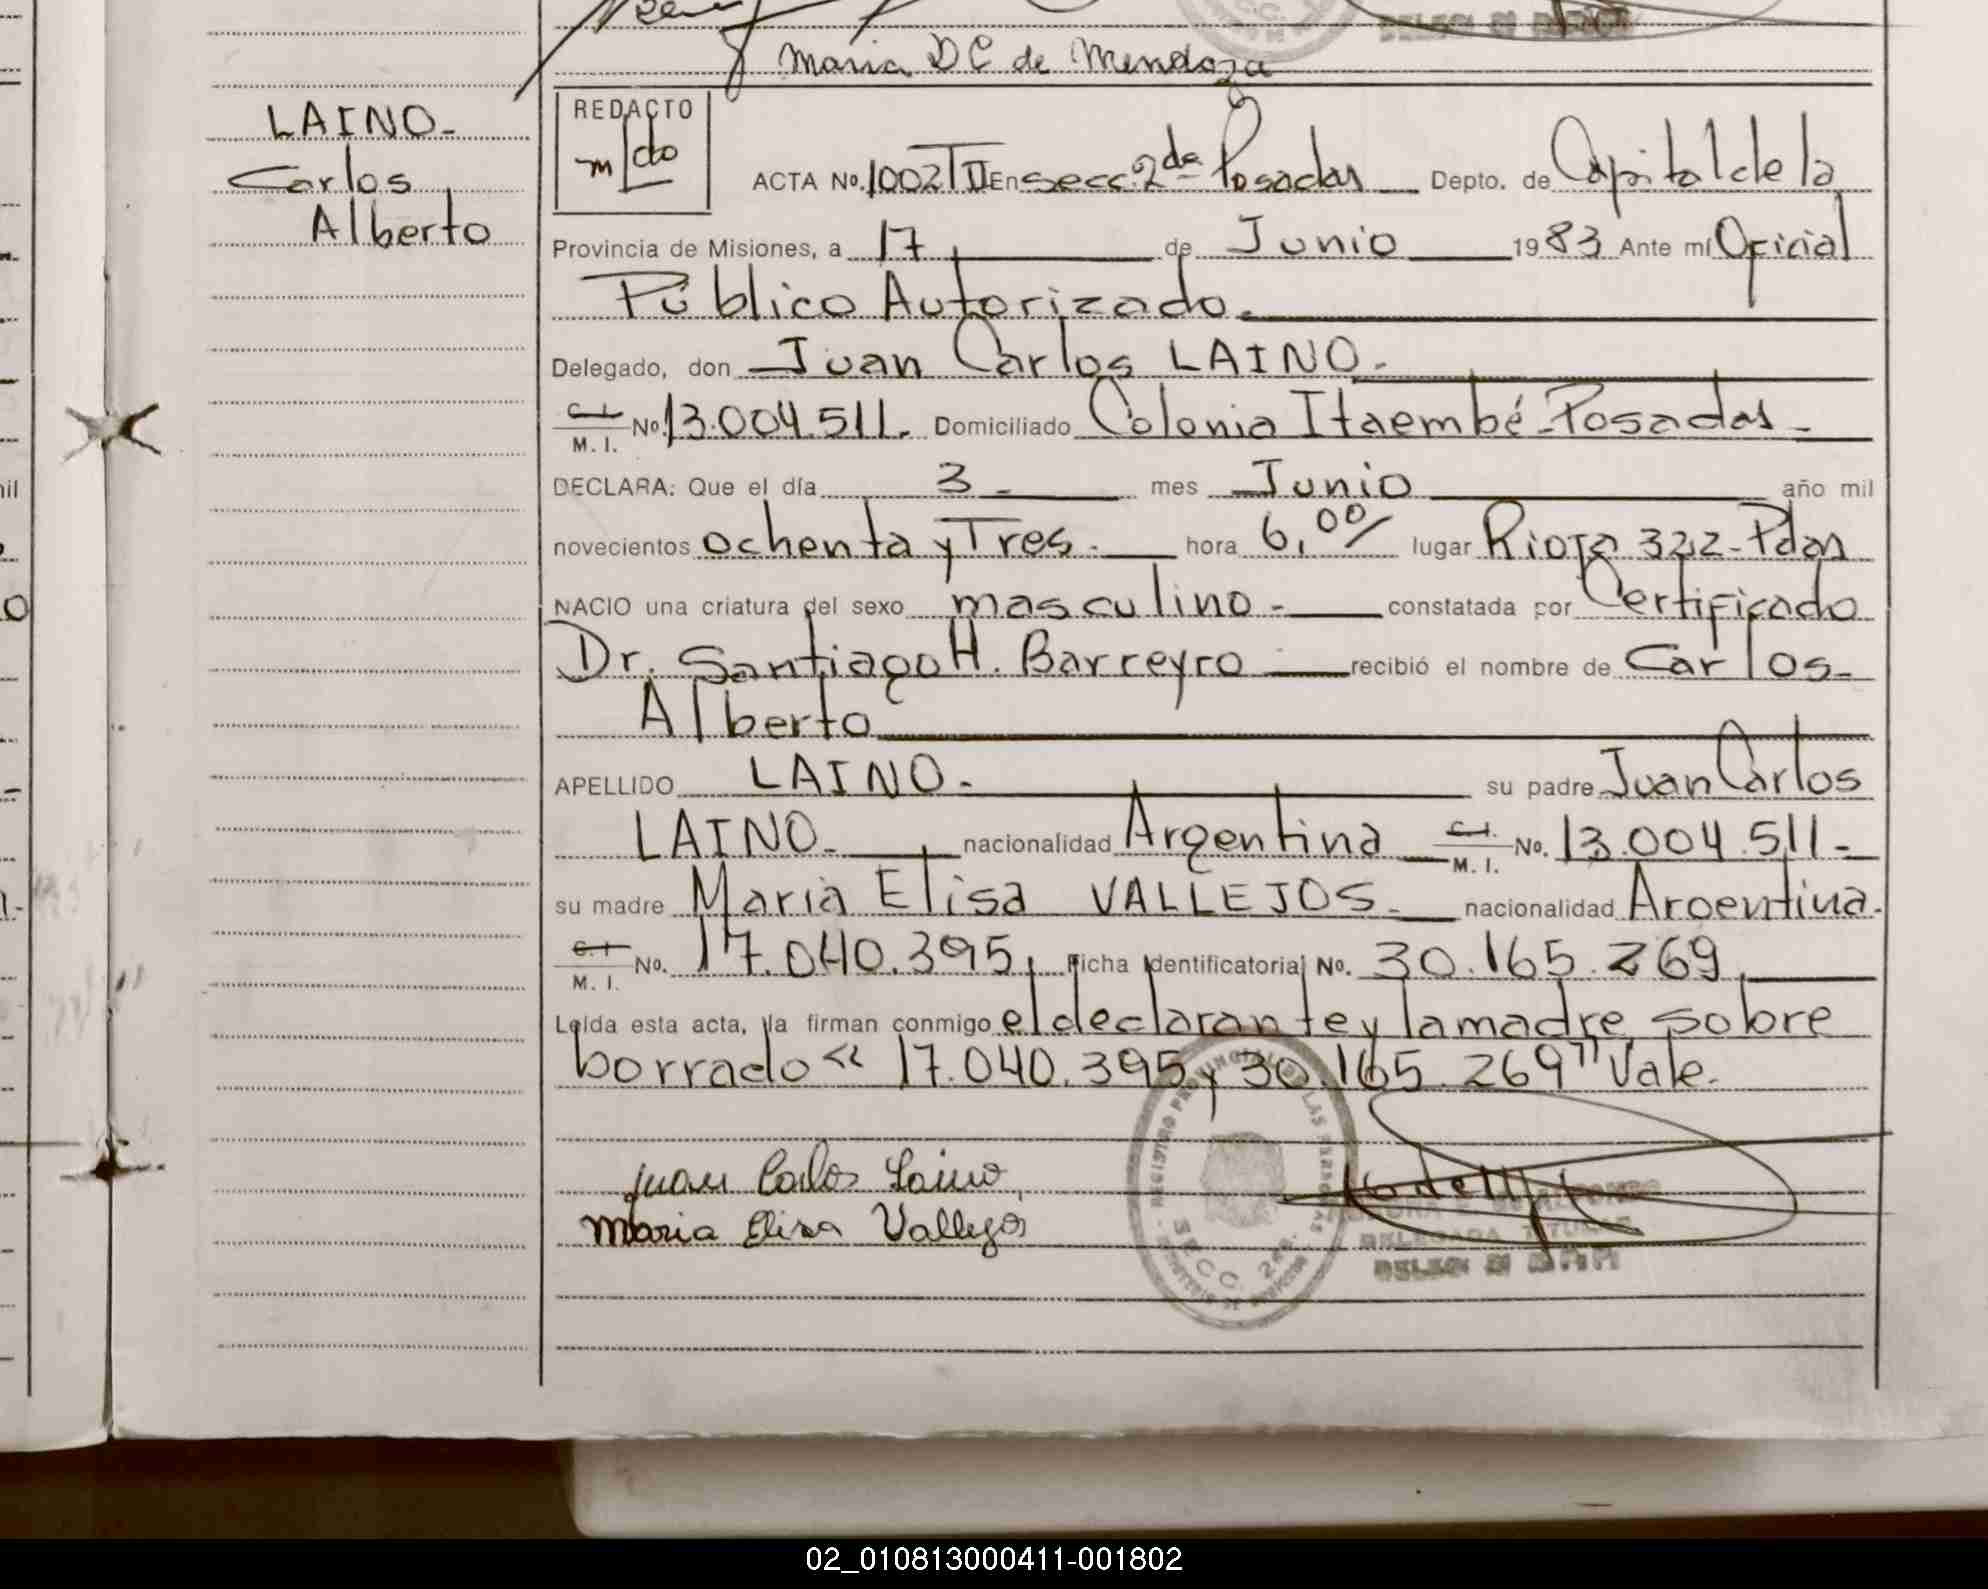 Maria DC de Mendoza
LAINO-
Carlos
Alberto
REDACTO
ACTA No. 1002 T II En secc. 2da Posadas Depto. de Capital de la
Provincia de Misiones, a 17 de Junio 1983 Ante mí Oficial
Público Autorizado.
Delegado, don Juan Carlos LAINO-
C. I.
M. I. No. 13.004.511. Domiciliado Colonia Itaembé-Posadas-
DECLARA: Que el día 3- mes Junio año mil
novecientos ochenta y Tres- hora 6,00/ lugar Rioja 322-Pdas
NACIO una criatura del sexo masculino- constatada por Certificado
Dr. Santiago H. Barreyro recibió el nombre de Carlos-
Alberto
APELLIDO LAINO- su padre Juan Carlos
LAINO- nacionalidad Argentina C. I.
M. I. No. 13.004.511-
su madre Maria Elisa VALLEJOS- nacionalidad Argentina-
C. I.
M. I. No. 17.040.395, Ficha Identificatorial No. 30.165.269,
Leída esta acta, la firman conmigo el declarante y la madre, sobre
borrado "17.040.395 y 30.165.269" Vale.
Juan Carlos Laino
Maria Elisa Vallejos
REGISTRO PROVINCIAL DE LAS PERSONAS
SECC. 2da.
DELEGADA TITULAR
02_010813000411-001802